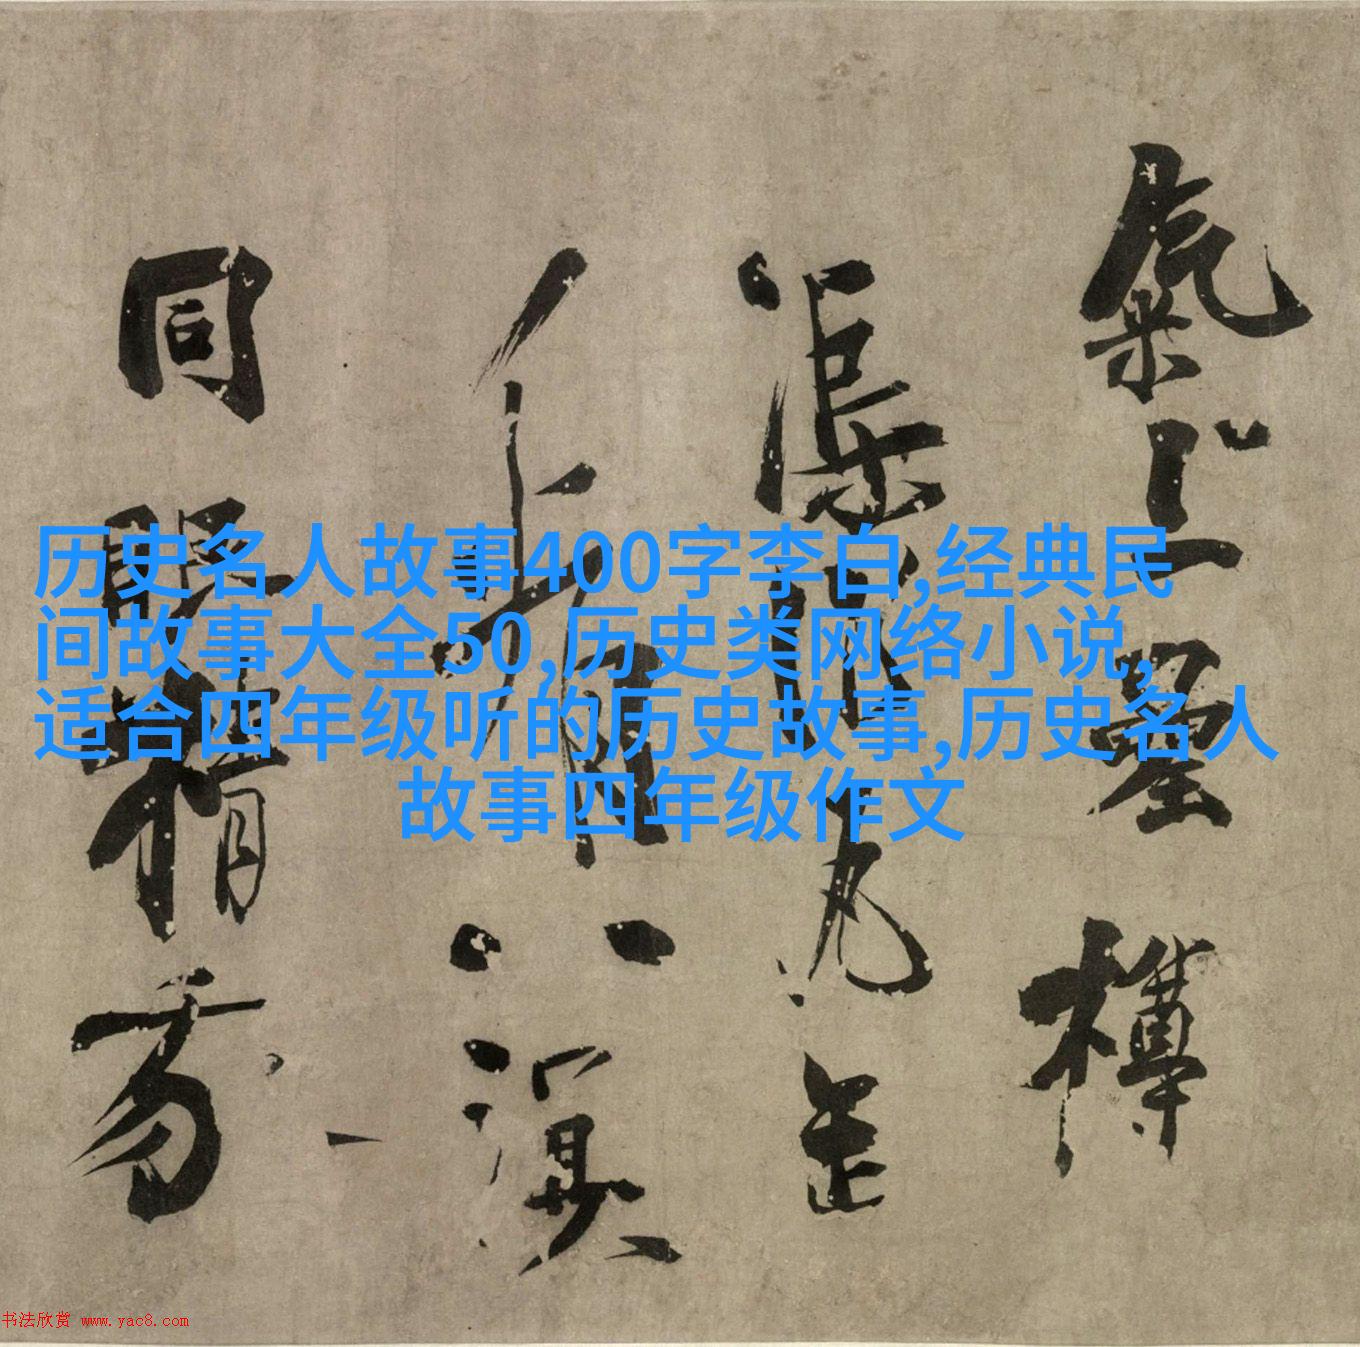 氣上星樽
渠
上有八溟
同眠精爽
历史名人故事400字李白,经典民
间故事大全50,历史类网络小说,
适合四年级听的历史故事,历史名人
故事四年级作文
书法欣赏 www.yac8.com